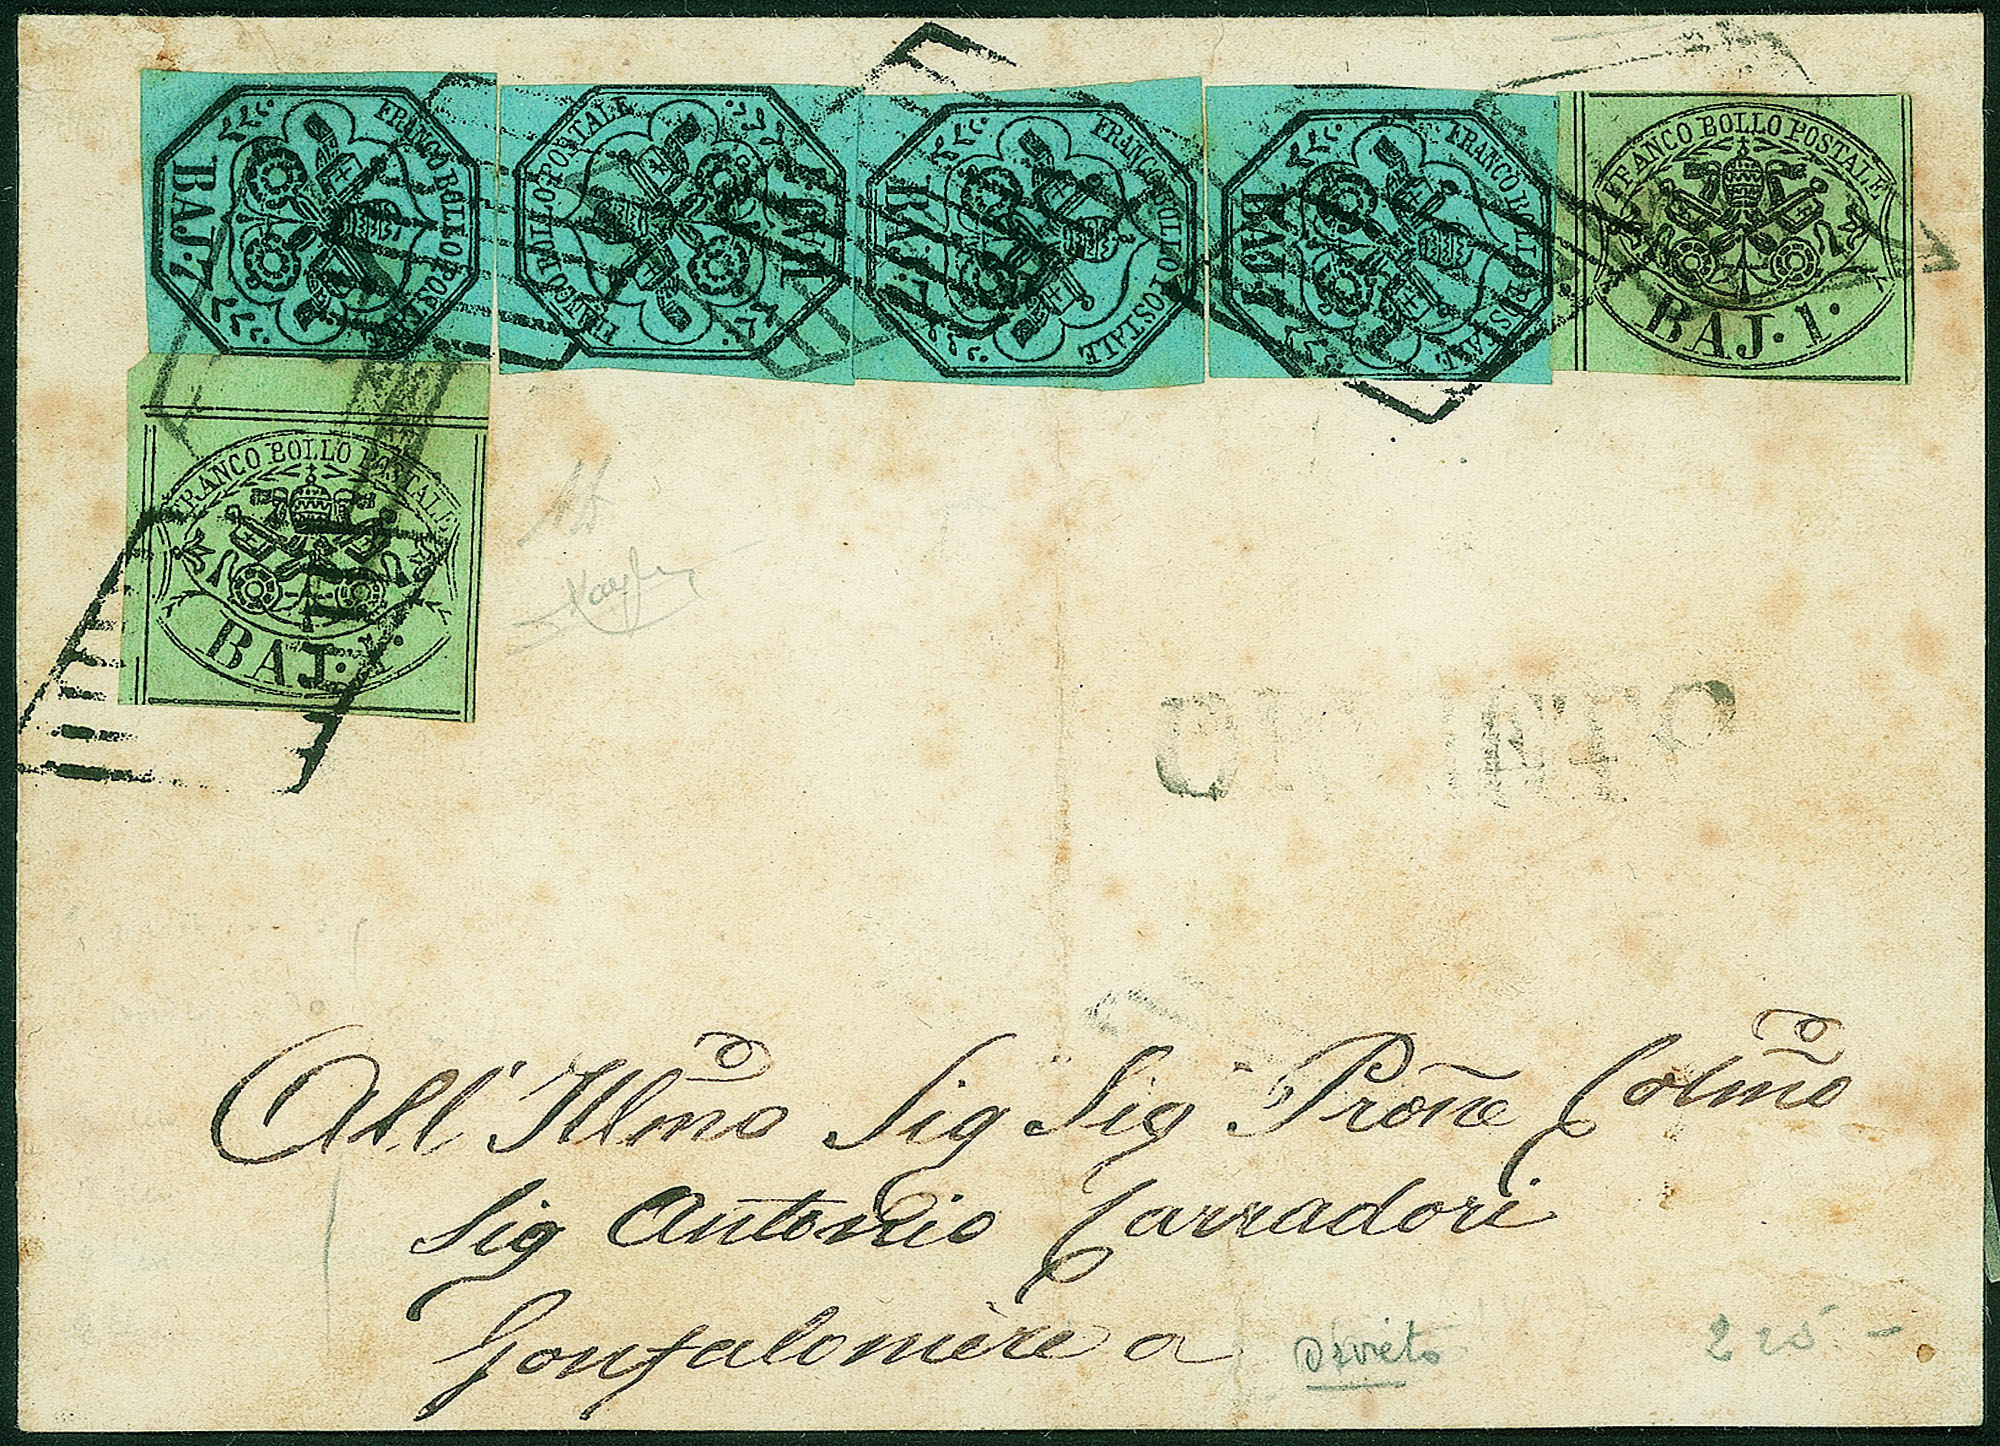 FRANCO BOLLO POSTALE
BAJ. 7
FRANCO BOLLO POSTALE
BAJ. 7
FRANCO BOLLO POSTALE
BAJ. 7
FRANCO BOLLO POSTALE
BAJ. 7
FRANCO BOLLO POSTALE
BAJ. 1.
FRANCO BOLLO POSTALE
BAJ. 1.
All' Illmo Sig Sig Prōne Colmo
Sig Antonio Carradori
Gonfaloniere a Orvieto